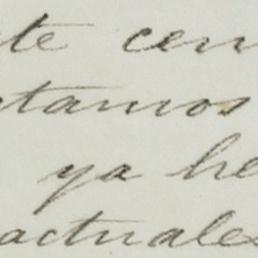 te cen
tamos
ya he
actuales